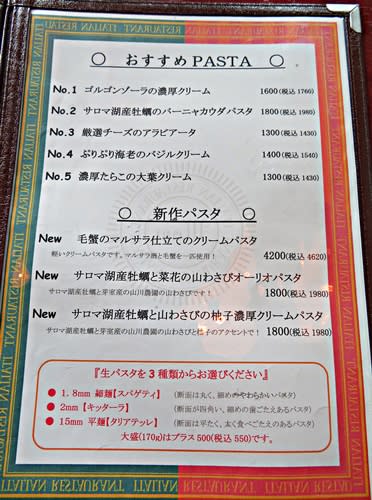 ITALIAN RESTAURANT ITALIAN RESTAURANT
○ おすすめ PASTA ○
No.1 ゴルゴンゾーラの濃厚クリーム 1600(税込 1760)
No.2 サロマ湖産牡蠣のバーニャカウダパスタ 1800(税込 1980)
No.3 厳選チーズのアラビアータ 1300(税込 1430)
No.4 ぷりぷり海老のバジルクリーム 1400(税込 1540)
No.5 濃厚たらこの大葉クリーム 1300(税込 1430)
○ 新作パスタ ○
New 毛蟹のマルサラ仕立てのクリームパスタ
軽いクリームパスタです。マルサラ酒と毛蟹を一匹使用! 4200(税込 4620)
New サロマ湖産牡蠣と菜花の山わさびオーリオパスタ
サロマ湖産牡蠣と芽室産の山川農園の山わさびです! 1800(税込 1980)
New サロマ湖産牡蠣と山わさびの柚子濃厚クリームパスタ
サロマ湖産牡蠣と芽室産の山川農園の山わさびと柚子のアクセントで! 1800(税込 1980)
『生パスタを3種類からお選びください』
● 1.8mm 細麺【スパゲティ】 (断面は丸く、細めのやわらかいパスタ)
● 2mm【キッターラ】 (断面が四角い、細めの歯ごたえあるパスタ)
● 15mm 平麺【タリアテッレ】 (断面は平たく、太く食べごたえのあるパスタ)
大盛(170g)はプラス 500(税込 550)です。
ITALIAN RESTAURANT ITALIAN RESTAURANT